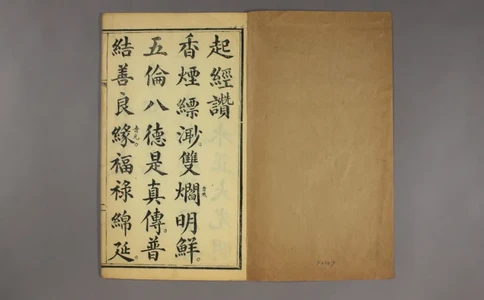 起經讚
香煙縹渺雙燭明鮮
五倫八德是真傳普
結善良緣福祿綿延